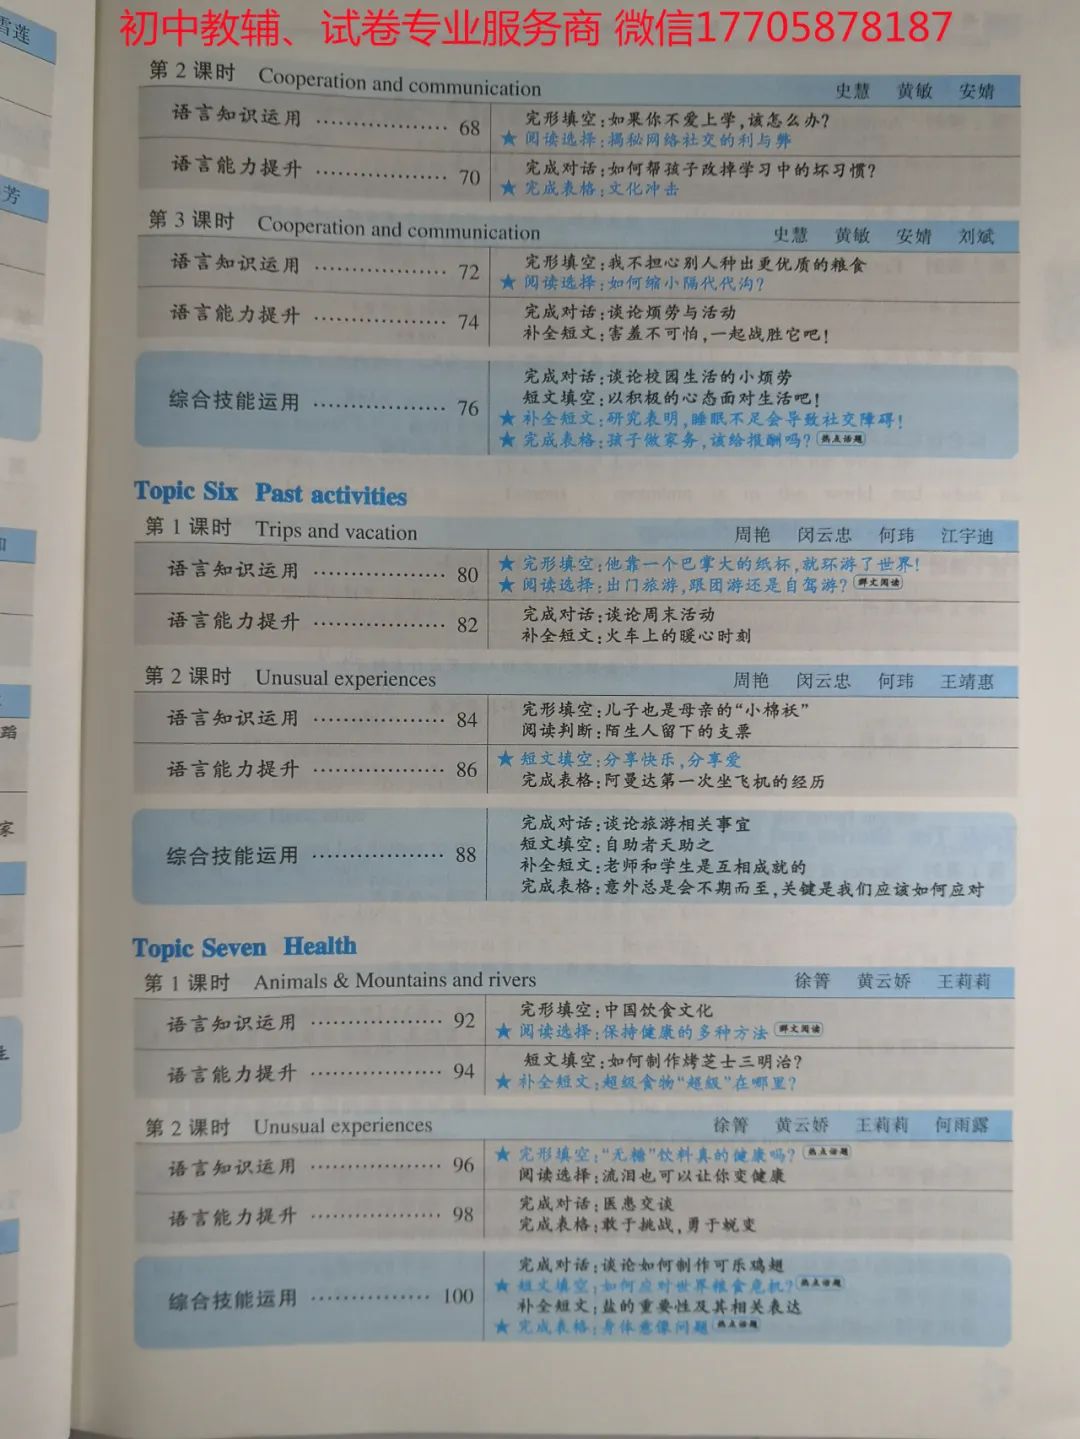 初中教辅、试卷专业服务商 微信17705878187
第2课时 Cooperation and communication 史慧 黄敏 安婧
语言知识运用 ⋯⋯⋯⋯⋯⋯ 68 完形填空:如果你不爱上学,该怎么办?
★ 阅读选择:揭秘网络社交的利与弊
语言能力提升 ⋯⋯⋯⋯⋯⋯ 70 完成对话:如何帮孩子改掉学习中的坏习惯?
★ 完成表格:文化冲击
第3课时 Cooperation and communication 史慧 黄敏 安婧 刘斌
语言知识运用 ⋯⋯⋯⋯⋯⋯ 72 完形填空:我不担心别人种出更优质的粮食
★ 阅读选择:如何缩小隔代代沟?
语言能力提升 ⋯⋯⋯⋯⋯⋯ 74 完成对话:谈论烦劳与活动
补全短文:害羞不可怕,一起战胜它吧!
综合技能运用 ⋯⋯⋯⋯⋯⋯ 76 完成对话:谈论校园生活的小烦劳
短文填空:以积极的心态面对生活吧!
★ 补全短文:研究表明,睡眠不足会导致社交障碍!
★ 完成表格:孩子做家务,该给报酬吗? 热点话题
Topic Six Past activities
第1课时 Trips and vacation 周艳 闵云忠 何玮 江宇迪
语言知识运用 ⋯⋯⋯⋯⋯⋯ 80 ★ 完形填空:他靠一个巴掌大的纸杯,就环游了世界!
★ 阅读选择:出门旅游,跟团游还是自驾游? 群文阅读
语言能力提升 ⋯⋯⋯⋯⋯⋯ 82 完成对话:谈论周末活动
补全短文:火车上的暖心时刻
第2课时 Unusual experiences 周艳 闵云忠 何玮 王靖惠
语言知识运用 ⋯⋯⋯⋯⋯⋯ 84 完形填空:儿子也是母亲的“小棉袄”
阅读判断:陌生人留下的支票
语言能力提升 ⋯⋯⋯⋯⋯⋯ 86 ★ 短文填空:分享快乐,分享爱
完成表格:阿曼达第一次坐飞机的经历
综合技能运用 ⋯⋯⋯⋯⋯⋯ 88 完成对话:谈论旅游相关事宜
短文填空:自助者天助之
补全短文:老师和学生是互相成就的
完成表格:意外总是会不期而至,关键是我们应该如何应对
Topic Seven Health
第1课时 Animals & Mountains and rivers 徐箐 黄云娇 王莉莉
语言知识运用 ⋯⋯⋯⋯⋯⋯ 92 完形填空:中国饮食文化
★ 阅读选择:保持健康的多种方法 群文阅读
语言能力提升 ⋯⋯⋯⋯⋯⋯ 94 短文填空:如何制作烤芝士三明治?
★ 补全短文:超级食物“超级”在哪里?
第2课时 Unusual experiences 徐箐 黄云娇 王莉莉 何雨露
语言知识运用 ⋯⋯⋯⋯⋯⋯ 96 ★ 完形填空:“无糖”饮料真的健康吗? 热点话题
阅读选择:流泪也可以让你变健康
语言能力提升 ⋯⋯⋯⋯⋯⋯ 98 完成对话:医患交谈
完成表格:敢于挑战,勇于蜕变
综合技能运用 ⋯⋯⋯⋯⋯⋯ 100 完成对话:谈论如何制作可乐鸡翅
★ 短文填空:如何应对世界粮食危机? 热点话题
补全短文:盐的重要性及其相关表达
★ 完成表格:身体意像问题 热点话题